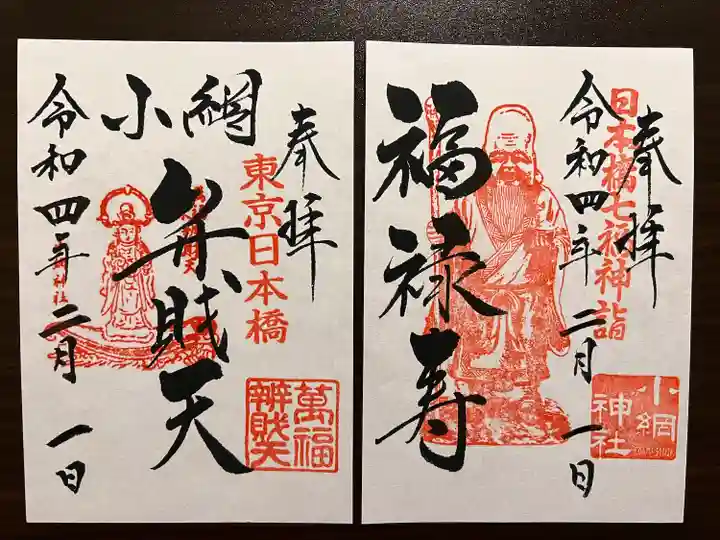 奉拝
東京日本橋
小網
弁財天
萬福
辨財天
令和四年二月一日
奉拝
日本橋七福神詣
福禄寿
小網
神社
令和四年二月一日